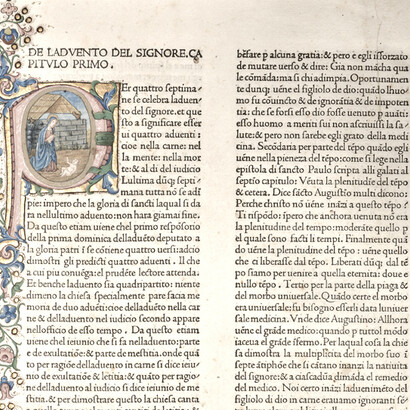 DE LADVENTO DEL SIGNORE.CA
PITVLO PRIMO.
Er quattro septima⸗
ne se celebra laduen⸗
to del signore.et que
sto a significare esser
ui quattro aduenti :
cioe nella carne: nel
la mente: nella mor
te:& al di del iudicio
Lultima dūq; septi⸗
mana tutta nō se ad
pie: impero che la gloria di sancti laqual si da
ra nellultimo aduento:non hara giamai fine.
Da questo etiam uiene chel primo respōsorio
della prima dominica delladuēto deputato a
la gloria patri se cōtiene quattro uersi:aduio
dimostra gli predicti quattro aduenti. Il che
a cui piu conuēga:el prudēte lectore attenda.
Et benche laduento sia quadripartito: niente
dimeno la chiesa specialmente pare facia me
moria de duo aduēti:cioe delladuēto nella car
ne & delladuento nel iudicio secondo appare
nellofficio de esso tempo. Da questo etiam
uiene chel ieiunio che si fa nelladuento: parte
e de exultatiōe:& parte de mestitia. onde quā
to per ragiōe delladuento in carne si dice ieiu
nio de exultatiōe & letitia: & quāto per ragio⸗
ne delladuento al iudicio si dice ieiunio de me
stitia. & per dimostrare questo la chiesa canta
besare p̄ alcuna gratia: & pero e gli isforzato
de mutare uerso & dire: Gia non māca qua
le cōmāda: ma si chi adimpia. Oportunamen
te dunq; uēne el figliolo de dio: q̄do lhuo⸗
mo su couincto & de ignorātia & de impoten
tia: che se forsi esso dio fosse uenuto p̄ auāti:
esso huomo a meriti sui non ascriuissi la sa⸗
lute:& pero non sarebe egli grato della medi
cina. Secōdaria per parte del tēpo q̄ādo egli
uēne nella pieneza del tēpo:come si lege nella
epistola di sancto Paulo scripta alli galati al
septīo capitulo: Vēuta la plenitudine del tēpo
& cetera. Dice sācto Augustīo multi dicono:
Perche christo nō uēne ināzi a questo tēpo?
Ti rispōdo: ipero che anchora uenuta nō era
la plenitudine del tempo:moderāte quello p̄
el quale sono facti li tempi. Finalmente quā
do uēne la plenitudine del tēpo: uēne quello
che ci liberasse dal tēpo. Liberati dūq; dal tē
po siamo per uenire a quella eternita: doue e
nullo tēpo. Tertio per la parte della piaga &
del morbo uniuersale. Quādo certe el morbo
era uniuersale:fu bisogno esserli data luniuer
sale medicina. Vnde dice Augustino: Allhora
uēne el grāde medico: quando p̄ tuttol mōdo
iaceua el grāde ifermo. Per laqual cosa la chie
sa dimostra la multiplecita del morbo suo ī
septe ātiphōe che si cātano inanzi la natiuita
del signore:& a ciascaduna dimāda el remedio
del medico. Noi certo inātzi laduenimēto del
figliolo di dio in carne